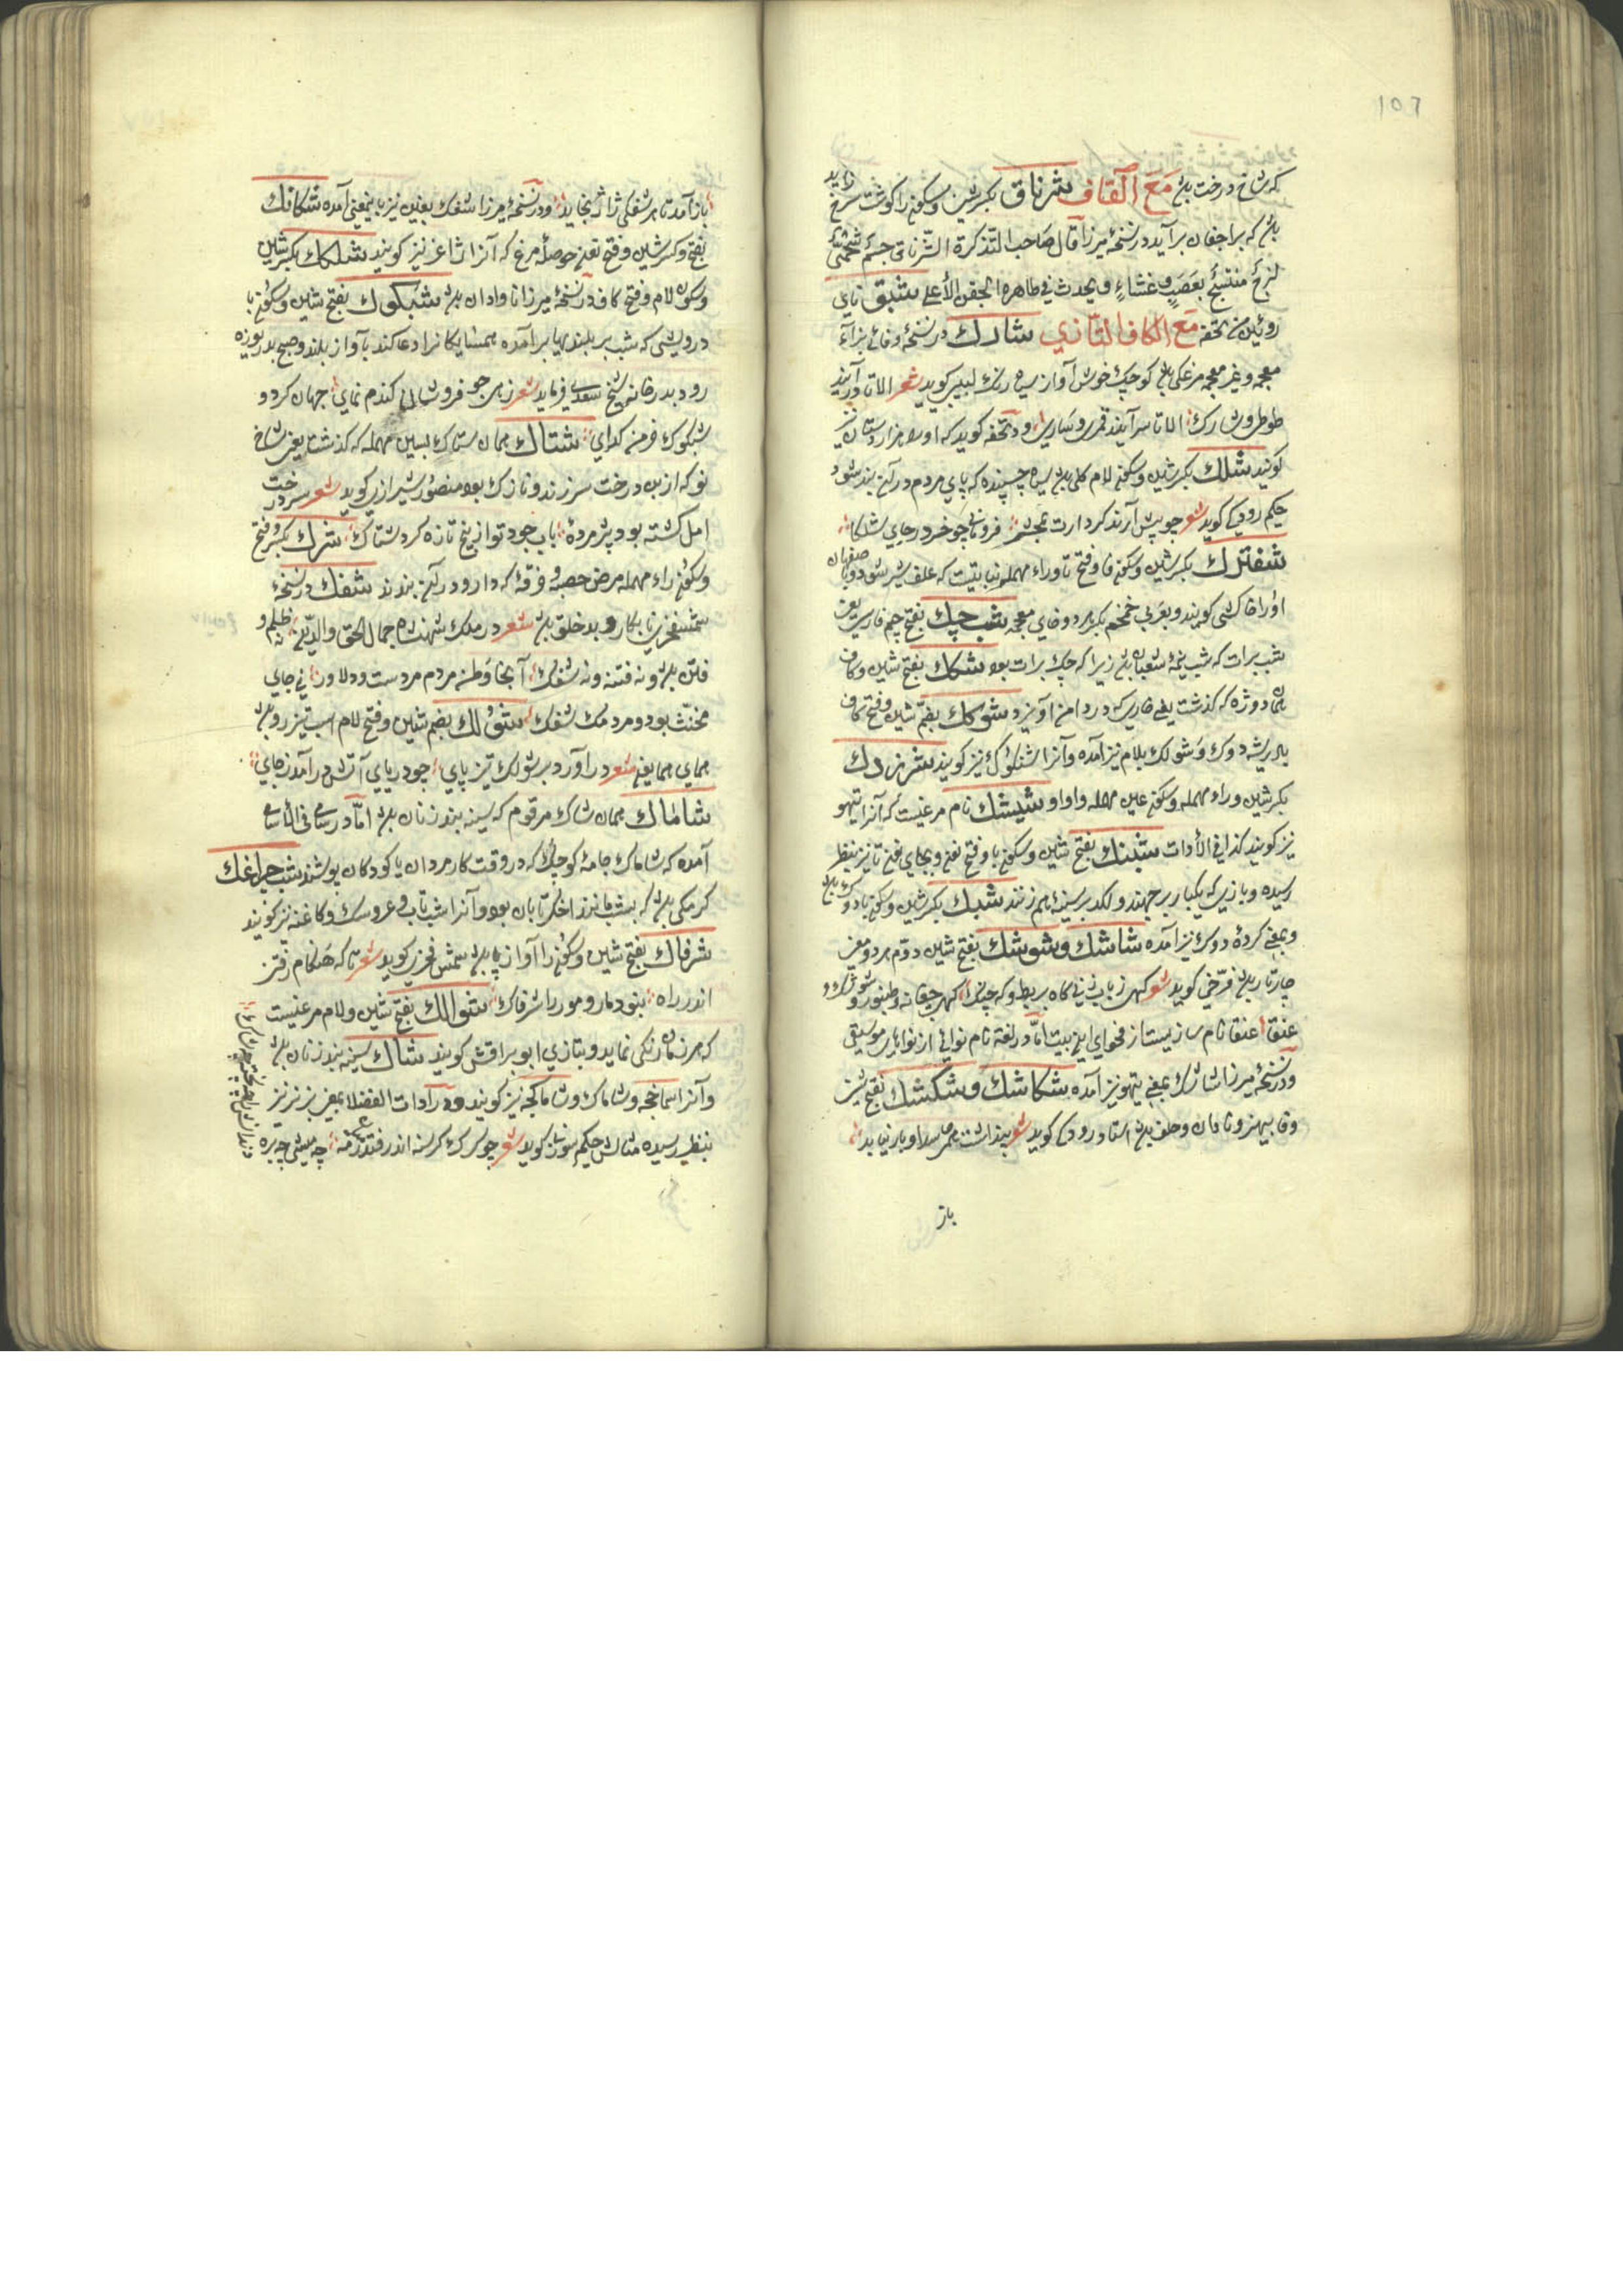 ١٥٦
که شاخ درخت باشد مَعَ اَلْقاف شرناق بکسر شین و سکون را گوشت سرخ زاید
باشد که بر اجفان برآید در نسخهٔ میرزا قال صاحب التذکرة الشرناق جسم شحمی
لزج منتسج بعصب و غشاء و یحدث فی ظاهر الجفن الأعلی شبق نای
رویین من تحفه مَعَ الکاف التازی شارك در نسخهٔ وفائی بزاء
معجمه و غیر معجمه مرغکی باشد کوچک خوش آواز سیاه رنگ لبیبی کوید شعر الا تا درآیند
طوطی و شارک الا تا سرآیند قمری و ساری و در تحفه کوید که او را هزاردستان نیز
کویند شلك بکسر شین و سکون لام کلی باشد سیاه چسپنده که پای مردم در آن بند شود
حکیم رودکی کوید شعر چو پیش آرند کردارت بمحشر فرومانی چو خر در جای شلکا
شفترك بکسر شین و سکون فا و فتح تا و راء مهمله نباتیست که علف شتر شود و باصفهان
او را خاکشی کویند و بعربی خمخم بکسر هر دو خای معجمه شب چك بفتح جیم فارسی یعنی
شب برات که شب نیمهٔ شعبان باشد زیرا که چک برات بود شکك بفتح شین و کاف
همان دوژه که گذشت یعنی خاری که در دامن آویزد شوکك بضم شین و فتح کاف
بادریشهٔ دوک و شولک بلام نیز آمده و آنرا شنلوک نیز کویند شرزدك
بکسر شین و راء مهمله و سکون عین مهمله واواو شیشك نام مرغیست که آنرا تیهو
نیز کویند کذا فی الأدات شبنك بفتح شین و سکون با و فتح نون و بجای نون تا نیز بنظر
رسیده و بازیی که یکبار برجهند و لکد بر سینهٔ هم زنند شبك بکسر شین و سکون با دوک باشد
و بمعنی کردهٔ دوک نیز آمده شاشك و شوشك بفتح شین دوم هر دو بمعنی
چارتار باشد فرخی کوید شعر کهی زبان زنی کاه بربط و که چنک کهی چغانه و طنبور و شوشک و
عنقا عنقا نام سازیست از فحوای این بیت اما در لغة نام نوائی از نواهای موسیقی
و در نسخهٔ میرزا شارک بمعنی تیهو نیز آمده شکاشك و شکشك بفتح شین
و قا بیهنر و نادان و جلف باشد استاد رودکی کوید شعر
باز
باز آمد تا هر شفکی ژاژ بخاید و در نسخهٔ میرزا شفک بغین نیز باینمعنی آمده شکافك
بفتح و کسر شین و فتح نون حوصلهٔ مرغ که آنرا ژاغر نیز کویند شلکك بکسر شین
و سکون لام و فتح کاف در نسخهٔ میرزا ناوادان باشد شبکوك بفتح شین و سکون با
درویشی که شب بر بلندیها برآمده همسایکانرا دعا کند بآواز بلند و صبح بدریوزه
رود بدر خانه شیخ سعدی فرماید شعر زهی جو فروشان کندم نمای جهان کرد و
شبکوک خرمن کدای شتاك همان ستاک بسین مهمله که گذشت یعنی شاخ
نو که از بن درخت سر زند و نازک بود منصور شیرازی کوید شعر سر درخت
امل کشته بود پژمرده بآب جود تو از بیخ تازه کرد شتاک شرك بکسر و فتح
و سکون راء مهمله مرض حصبه و خرقهٔ که دارو در آن بندند شفك در نسخهٔ
شمس فخری نابکار و بدخلق باشد شعر در ملک شهنشاه جمال الحق والدین نه ظلم و
فتن باشد و نه فتنه و نه شفک آنجا وطن مردم مردست و دلاور نی جای
مخنث بود و مردمک شفک شولك بضم شین و فتح لام اسب تیز رو باشد
همای همایون شعر درآورد بر شولک تیز پای چو دریای آتش درآمد ز جای
شاماك همان شاک مرقوم که سینه بند زنان باشد اما در سامی فی الأسامی
آمده که شاماک جامهٔ کوچک که در وقت کار مردان یا کودکان پوشند شب چراغك
کرمکی باشد که بشب مانند اخکر تابان بود و آنرا شب تاب و عروسک و کاغنه نیز کویند
شرفاك بفتح شین و سکون را آواز پا باشد شمس فخری کوید شعر تا که هنکام رفتن
اندر راه نبود مار و مور را شرفاک شوالك بفتح شین و لام مرغیست
که هر زمان رنکی نماید و بتازی ابو براقش کویند شاك سینه بند زنان باشد
و آنرا سماخچه و شاماک و شاماکچه نیز کویند و در أدات الفضلا بمعنی بز نر نیز
بنظر رسیده مثالش حکیم سوزنی کوید شعر چو کرک کرسنه اندر فتد رمه چه میش چه بره